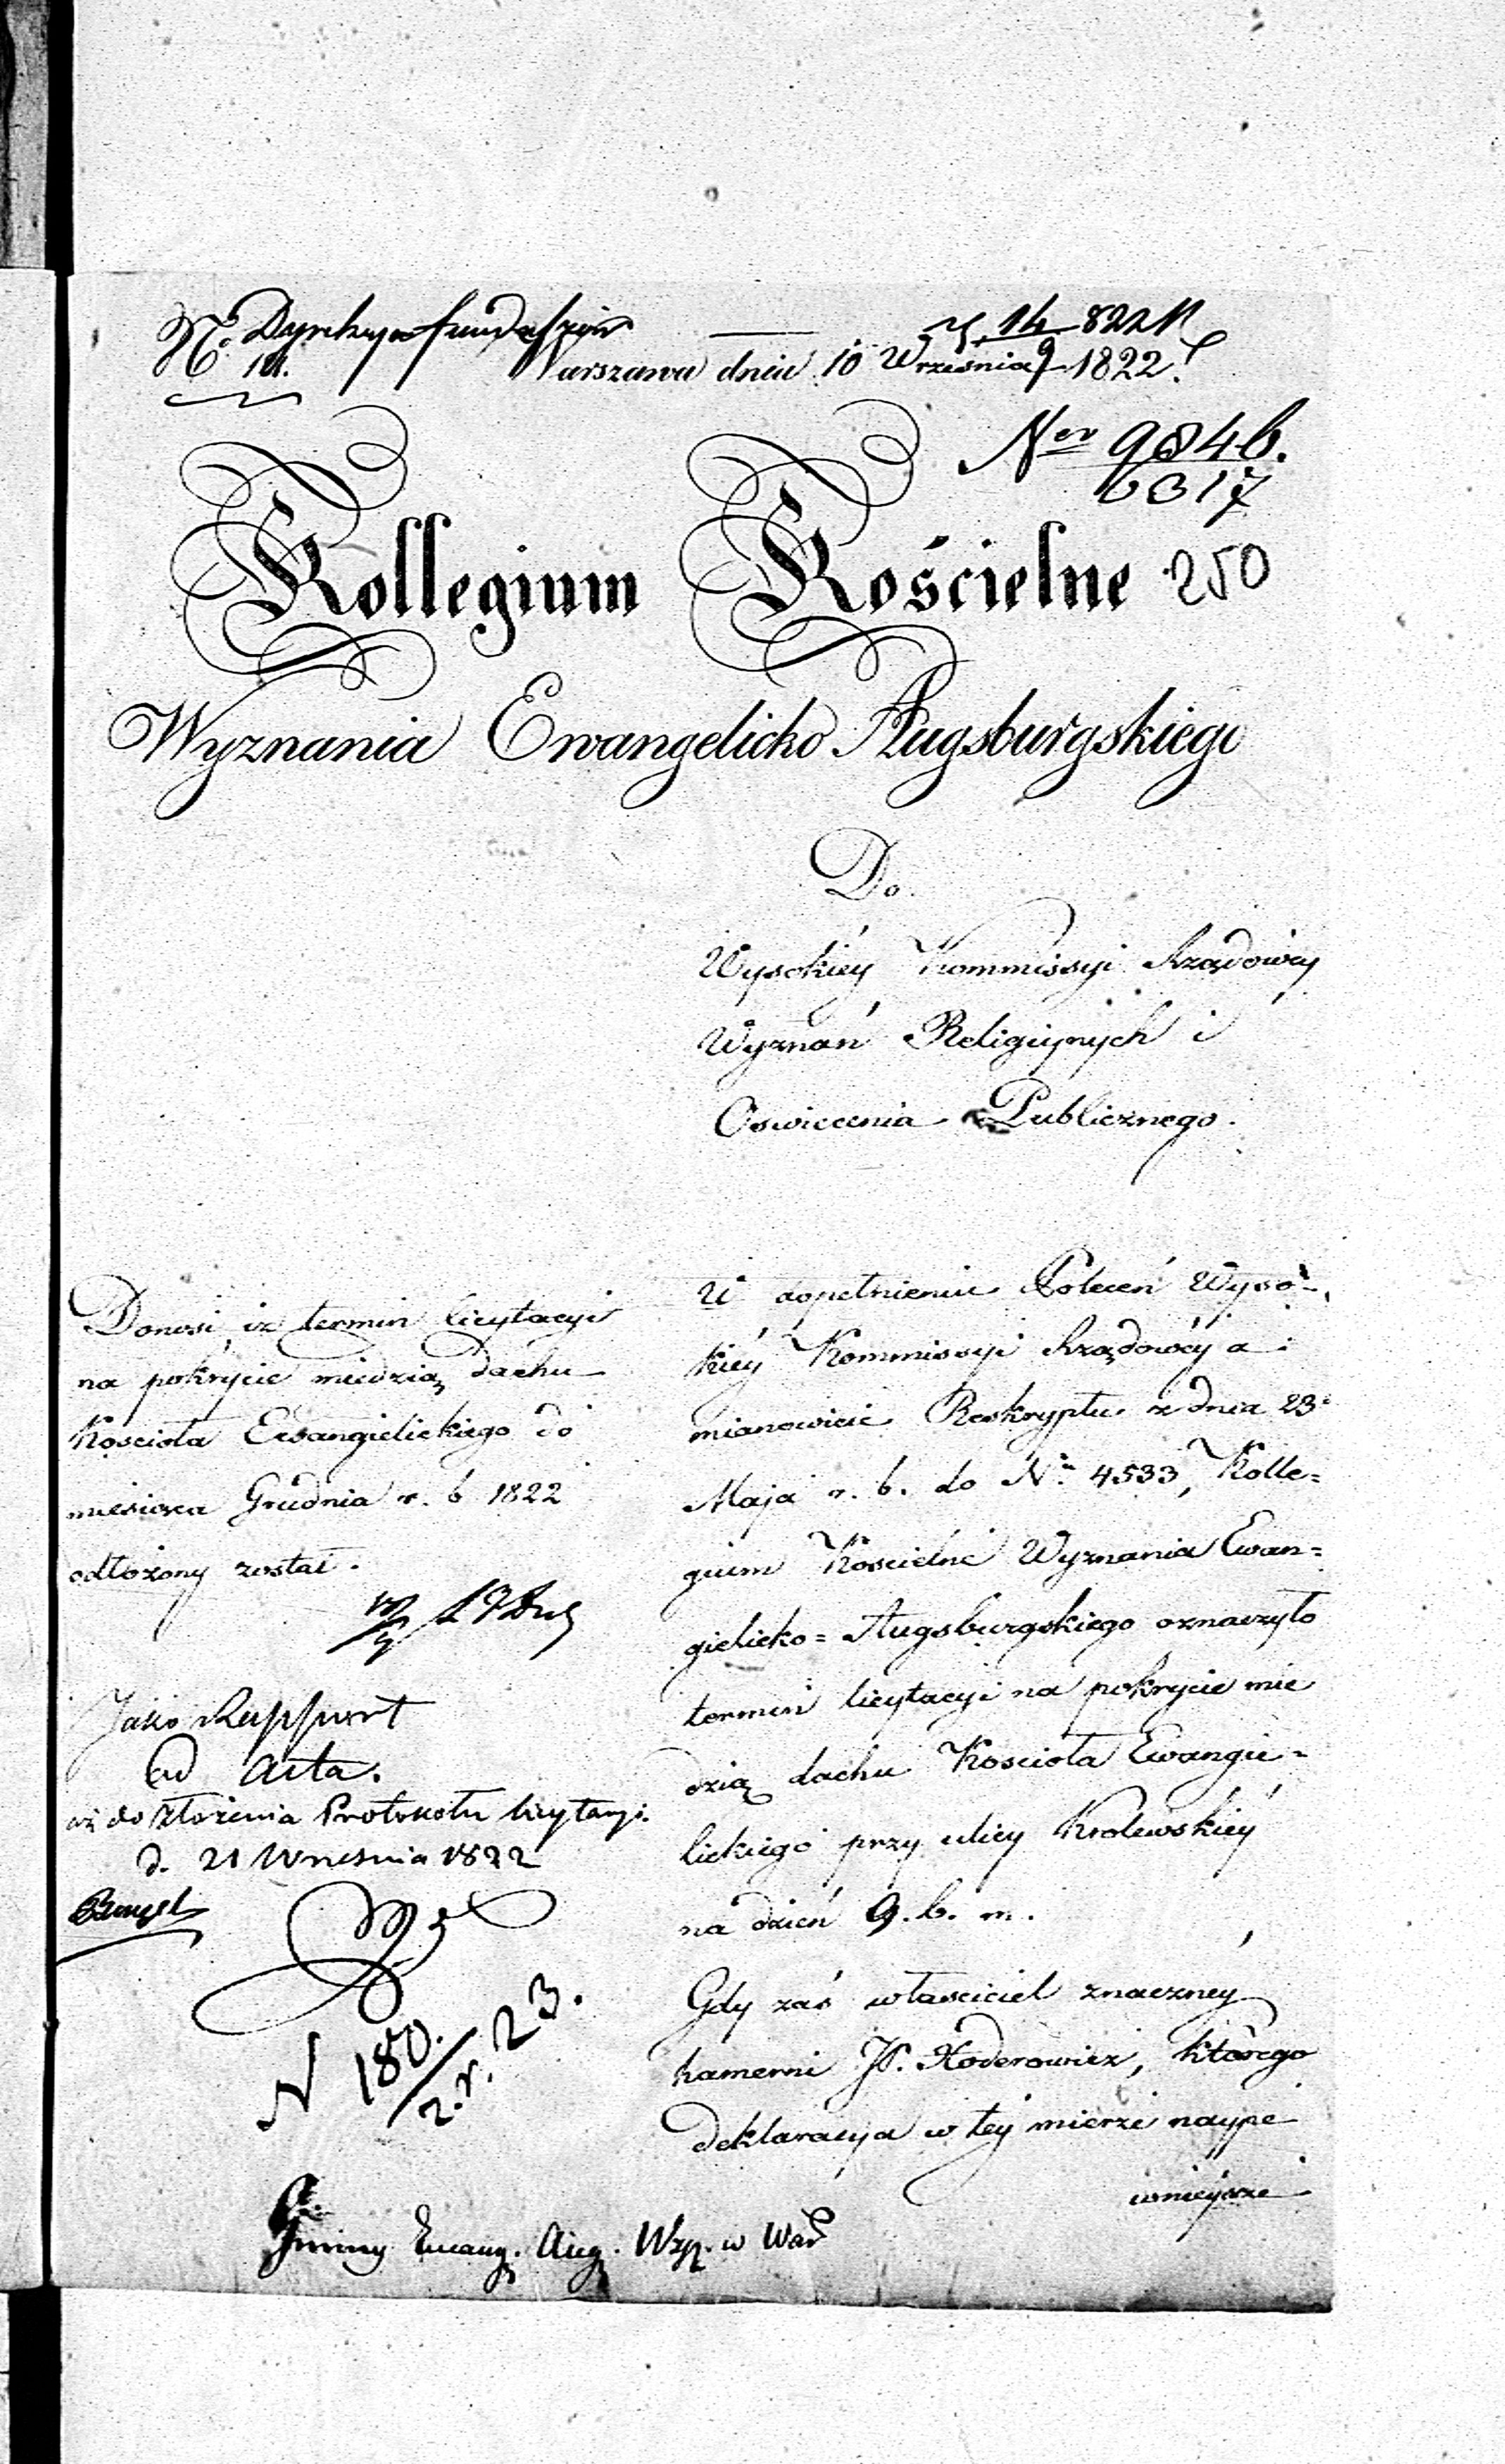 Warszawa dnia 10 Września 1822.
14 822
9
Ner 9846.
6317
Kollegium Kościelne 250
Wyznania Ewangelicko Augsburgskiego
Do
Wysokiéy Kommissyi Rządowéy
Wyznań Religiynych i
Oswiecenia Publicznego.
Donosi iż termin licytacyi
na pokrycie miedzią dachu
Kosciola Ewangielickiego do
miesiąca Grudnia r. b 1822
odłożony został.
Jako Rapport
ad Acta.
aż do złożenia Protokołu licytacyi.
d. 21 Wrzesnia 1822
N 180.
2.r. 23.
W dopełnieniu Poleceń Wyso=
kiéy Kommissyi Rządowéy a
mianowicie Reskryptu z dnia 23
Maja r. b. do No 4533, Kolle=
gium Koscielne Wyznania Ewan=
gielicko=Augsburgskiego oznaczyło
termin licytacyi na pokrycie mie
dzią dachu Kosciola Ewangie=
lickiego przy ulicy Krolewskiéy
na dzień 9. b. m.
Gdy zaś własciciel znaczney
hamerni JP. Xoderowicz, którego
deklaracya w tey mierze naype
wnieysze
Gminy Ewang. Aug. Wzn. w War